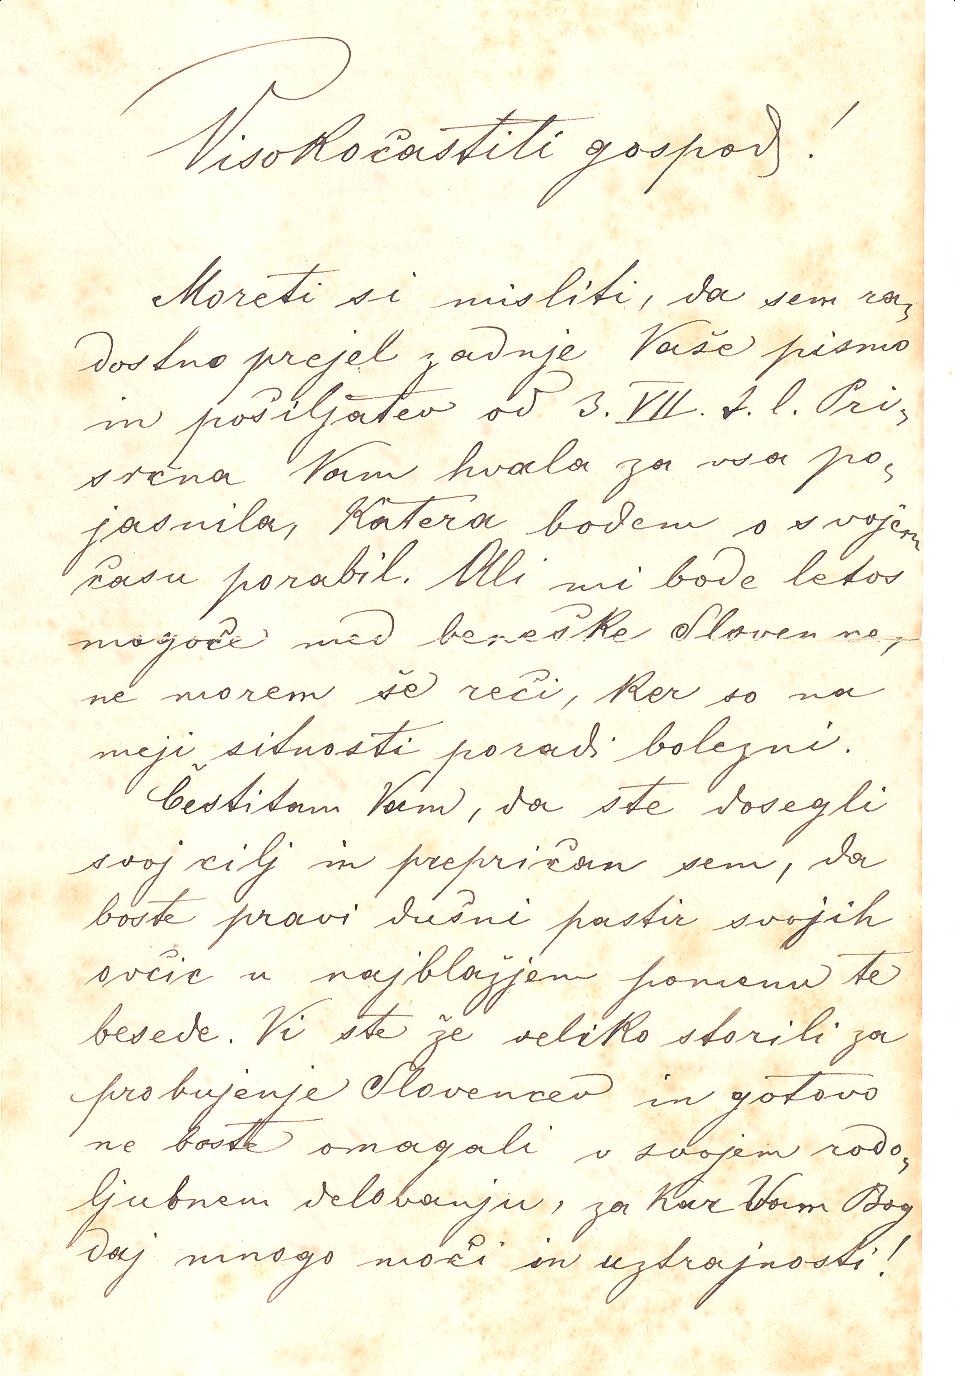 Visokočastiti gospod!
Moreti si misliti, da sem ra-
dostno prejel zadnje Vaše pismo
in pošiljatev od 3. VII. t. l. Pri-
srčna Vam hvala za vsa po-
jasnila, katera bodem o svojem
času porabil. Ali mi bode letos
mogoče med beneške Slovence,
ne morem še reči, ker so na
meji sitnosti poradi bolezni.
Čestitam Vam, da ste dosegli
svoj cilj in prepričan sem, da
boste pravi dušni pastir svojih
ovčic u najblažjem pomenu te
besede. Vi ste že veliko storili za
probujenje Slovencev in gotovo
ne boste omagali v svojem rodo-
ljubnem delovanju, za kar Vam Bog
daj mnogo moči in uztrajnosti!